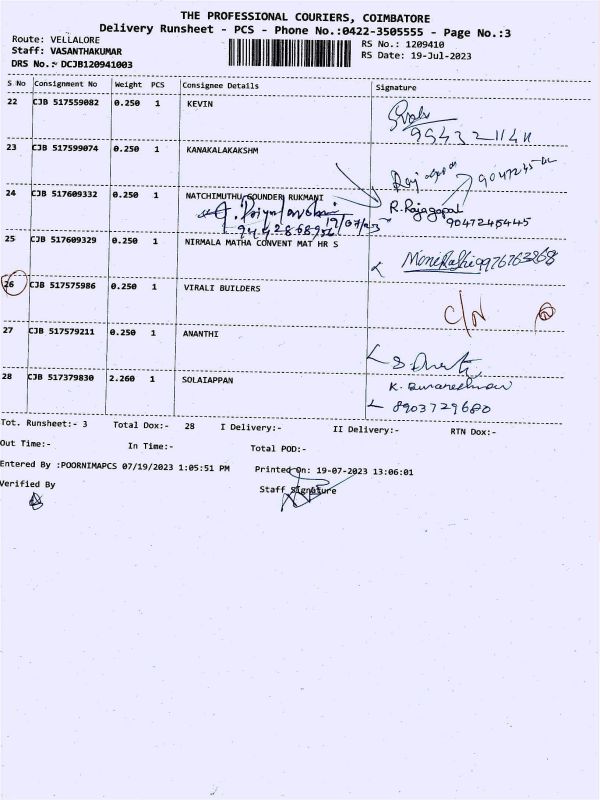 THE PROFESSIONAL COURIERS, COIMBATORE
Delivery Runsheet - PCS - Phone No.:0422-3505555 - Page No.:3
Route: VELLALORE
RS No.: 1209410
Staff: VASANTHAKUMAR
RS Date: 19-Jul-2023
DRS No.:- DCJB120941003
S No Consignment No Weight PCS Consignee Details Signature
22 CJB 517559082 0.250 1 KEVIN
23 CJB 517599074 0.250 1 KANAKALAKAKSHM
24 CJB 517609332 0.250 1 NATCHIMUTHU GOUNDER RUKMANI
R. Rajagopal
9047245445
19/07/23
25 CJB 517609329 0.250 1 NIRMALA MATHA CONVENT MAT HR S
26 CJB 517575986 0.250 1 VIRALI BUILDERS
C/N
27 CJB 517579211 0.250 1 ANANTHI
28 CJB 517379830 2.260 1 SOLAIAPPAN
8903729680
Tot. Runsheet:- 3 Total Dox:- 28 I Delivery:- II Delivery:- RTN Dox:-
Out Time:- In Time:- Total POD:-
Entered By :POORNIMAPCS 07/19/2023 1:05:51 PM Printed On: 19-07-2023 13:06:01
Verified By Staff Signature